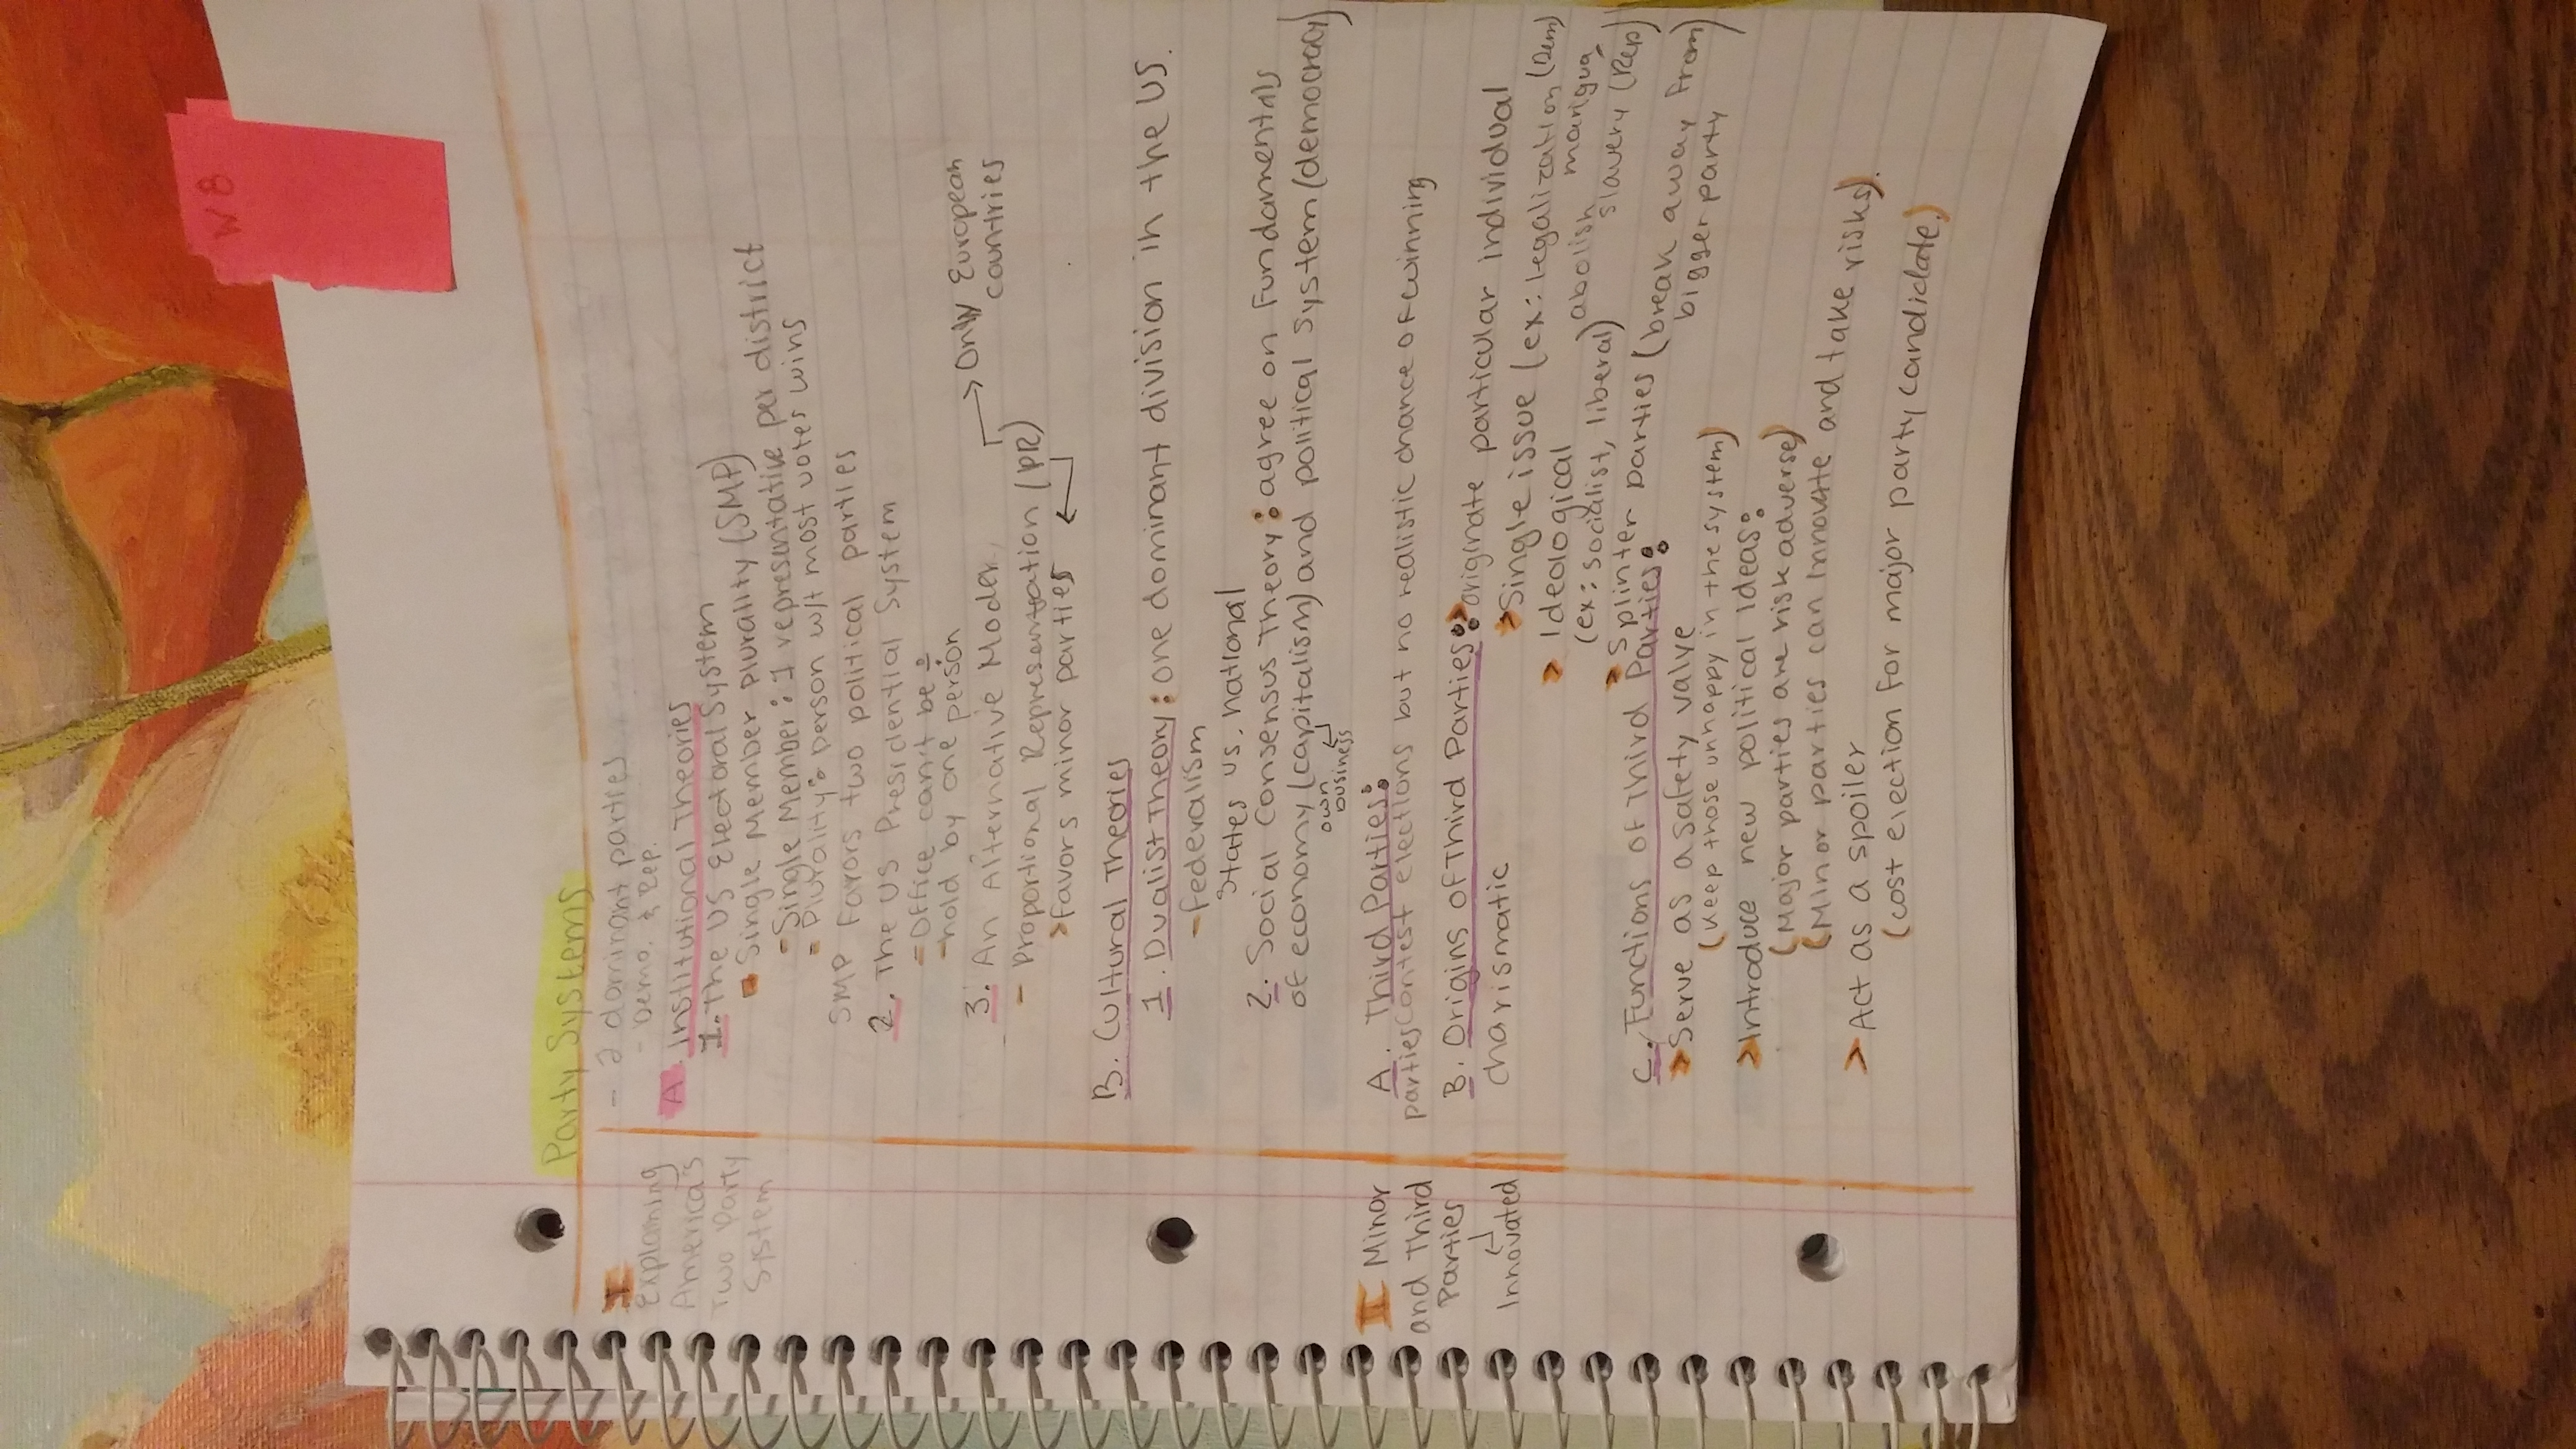 W8
Party Systems
I
Explaining
America's
Two Party
System
- 2 dominant parties
- Demo. & Rep.
A. Institutional Theories
1. The US Electoral System
Single Member Plurality (SMP)
- Single Member: 1 representative per district
- Plurality: person w/t most votes wins
SMP Favors two political parties
2. The US Presidential System
- Office can't be ÷
- hold by one person
3. An Alternative Model
- Proportional Representation (PR) → Only European
countries
> favors minor parties
B. Cultural Theories
1. Dualist Theory: one dominant division in the US.
- Federalism
States vs. national
2. Social Consensus Theory: agree on fundamentals
of economy (capitalism) and political system (democracy)
own
business
II Minor
and Third
Parties
Innovated
A. Third Parties:
parties contest elections but no realistic chance of winning
B. Origins of Third Parties: > originate particular individual
charismatic
> Single issue (ex: legalization (Dem)
marigua,
abolish
slavery (Rep)
> Ideological
(ex: socialist, liberal)
> Splinter parties (break away from)
bigger party
C. Functions of Third Parties:
> Serve as a safety valve
(keep those unhappy in the system)
> Introduce new political ideas:
(Major parties are risk adverse)
(Minor parties can innovate and take risks).
> Act as a spoiler
(cost election for major party candidate.)